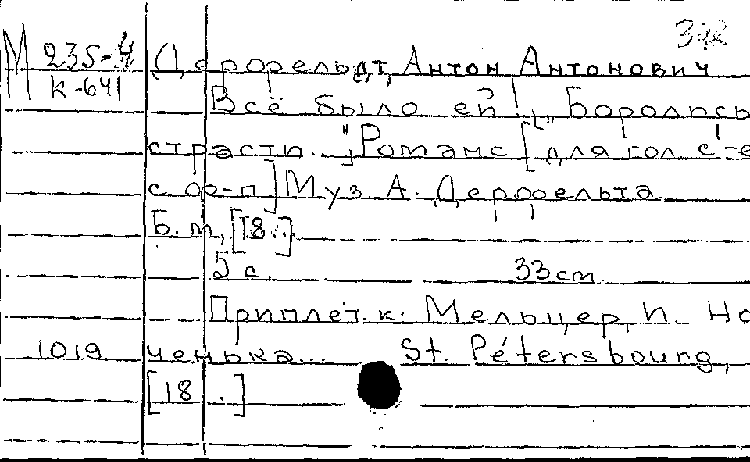 М 235-4 Дерфельдт, Антон Антонович
К-641 Всё было ей!, Боролись
страсти. "Романс [для гол. с
с ор-п] Муз А. Дерфельта
Б. т, [18..]
5 с. 33 cm
Приплет. к: Мельцер, И. Но
1019 ченька... St. Pétersbourg,
[18 . ]